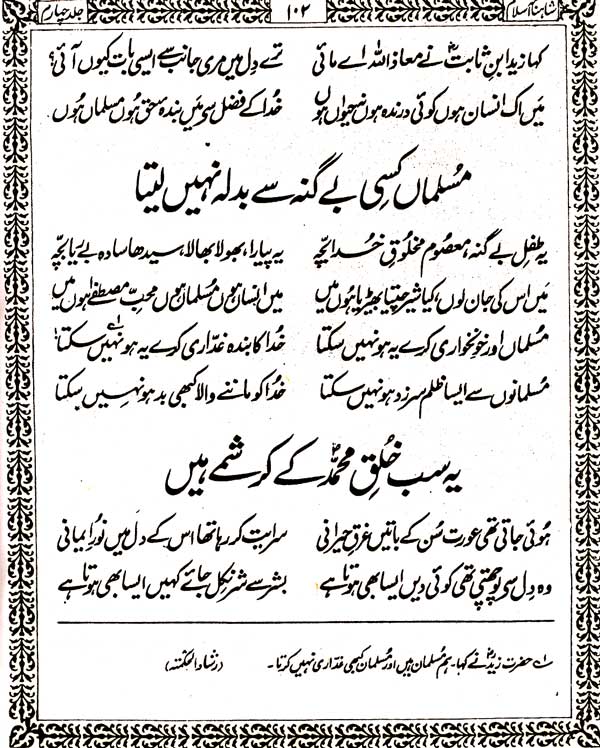 شاہنامۂ اسلام ۱۰۲ جلد چہارم
کہا زید ابنِ ثابتؓ نے معاذ اللہ اے مائی ترے دِل میں مری جانب سے ایسی بات کیوں آئی؟
مَیں اک انسان ہوں کوئی درندہ ہوں نہ حیواں ہوں خُدا کے فضل سے مَیں بندہ حق ہوں مسلماں ہوں
مُسلماں کسی بے گنہ سے بدلہ نہیں لیتا
یہ طفلِ بے گنہ، معصوم مخلوقِ خُدا بچّہ یہ پیارا، بھولا بھالا، سیدھا سادہ بے ریا بچّہ
مَیں اس کی جان لوں، کیا شیر چیتا بھیڑیا ہُوں میں میں انسان ہوں مُسلمان ہوں محبِّ مصطفےٰ ہوں میں
مُسلماں اور خونخواری کرے یہ ہو نہیں سکتا خُدا کا بندہ غدّاری کرے یہ ہو نہیں سکتا ۱؎
مُسلمانوں سے ایسا ظلم سرزد ہو نہیں سکتا خُدا کو ماننے والا کبھی بد ہو نہیں سکتا
یہ سب خُلقِ محمدؐ کے کرشمے ہیں
ہُوئی جاتی تھی عورت سُن کے باتیں غرقِ حیرانی سرایت کر رہا تھا اس کے دل میں نورِ ایمانی
وہ دِل سے پوچھتی تھی کوئی دیں ایسا بھی ہوتا ہے بشر سے شر نِکل جائے کہیں ایسا بھی ہوتا ہے
۱؎ حضرت زیدؓ نے کہا۔ ہم مُسلمان ہیں اور مُسلمان کبھی غدّاری نہیں کرتا۔ (رشاد الحکمتہ)